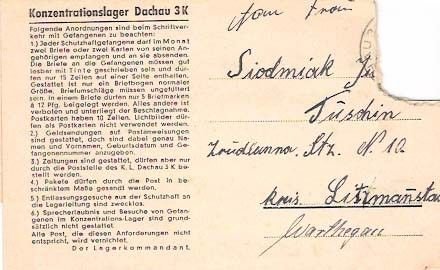 Konzentrationslager Dachau 3 K
Folgende Anordnungen sind beim Schriftver-
kehr mit Gefangenen zu beachten:
1.) Jeder Schutzhaftgefangene darf im Monat
zwei Briefe oder zwei Karten von seinen An-
gehörigen empfangen und an sie absenden.
Die Briefe an die Gefangenen müssen gut
lesbar mit Tinte geschrieben sein und dür-
fen nur 15 Zeilen auf einer Seite enthalten.
Gestattet ist nur ein Briefbogen normaler
Größe. Briefumschläge müssen ungefüttert
sein. In einem Briefe dürfen nur 5 Briefmarken
à 12 Pfg. beigelegt werden. Alles andere ist
verboten und unterliegt der Beschlagnahme.
Postkarten haben 10 Zeilen. Lichtbilder dür-
fen als Postkarten nicht verwendet werden.
2.) Geldsendungen auf Postanweisungen
sind gestattet, doch sind dabei genau Na-
men und Vornamen, Geburtsdatum und Ge-
fangenennummer anzugeben.
3.) Zeitungen sind gestattet, dürfen aber nur
durch die Poststelle des K. L. Dachau 3 K be-
stellt werden.
4.) Pakete dürfen durch die Post in be-
schränktem Maße gesandt werden.
5.) Entlassungsgesuche aus der Schutzhaft an
die Lagerleitung sind zwecklos.
6.) Sprecherlaubnis und Besuche von Gefan-
genen im Konzentrations-Lager sind grund-
sätzlich nicht gestattet.
Alle Post, die diesen Anforderungen nicht
entspricht, wird vernichtet.
Der Lagerkommandant.
Frau
Siodmiak
Tuschin
Str. N 10
kreis Litzmannstadt
Warthegau